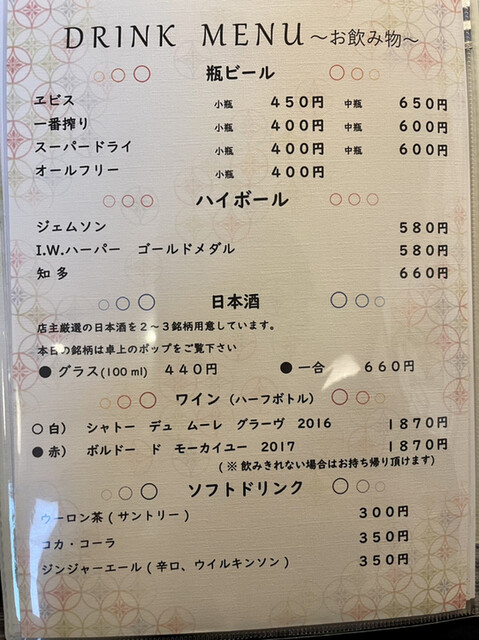 DRINK MENU～お飲み物～
瓶ビール
ヱビス 小瓶 450円 中瓶 650円
一番搾り 小瓶 400円 中瓶 600円
スーパードライ 小瓶 400円 中瓶 600円
オールフリー 小瓶 400円
ハイボール
ジェムソン 580円
I.W.ハーパー ゴールドメダル 580円
知多 660円
日本酒
店主厳選の日本酒を2～3銘柄用意しています。
本日の銘柄は卓上のポップをご覧下さい
● グラス(100ml) 440円 ● 一合 660円
ワイン（ハーフボトル）
○ 白） シャトー デュ ムーレ グラーヴ 2016 1870円
● 赤） ボルドー ド モーカイユー 2017 1870円
(※飲みきれない場合はお持ち帰り頂けます)
ソフトドリンク
ウーロン茶(サントリー) 300円
コカ・コーラ 350円
ジンジャーエール(辛口、ウイルキンソン) 350円